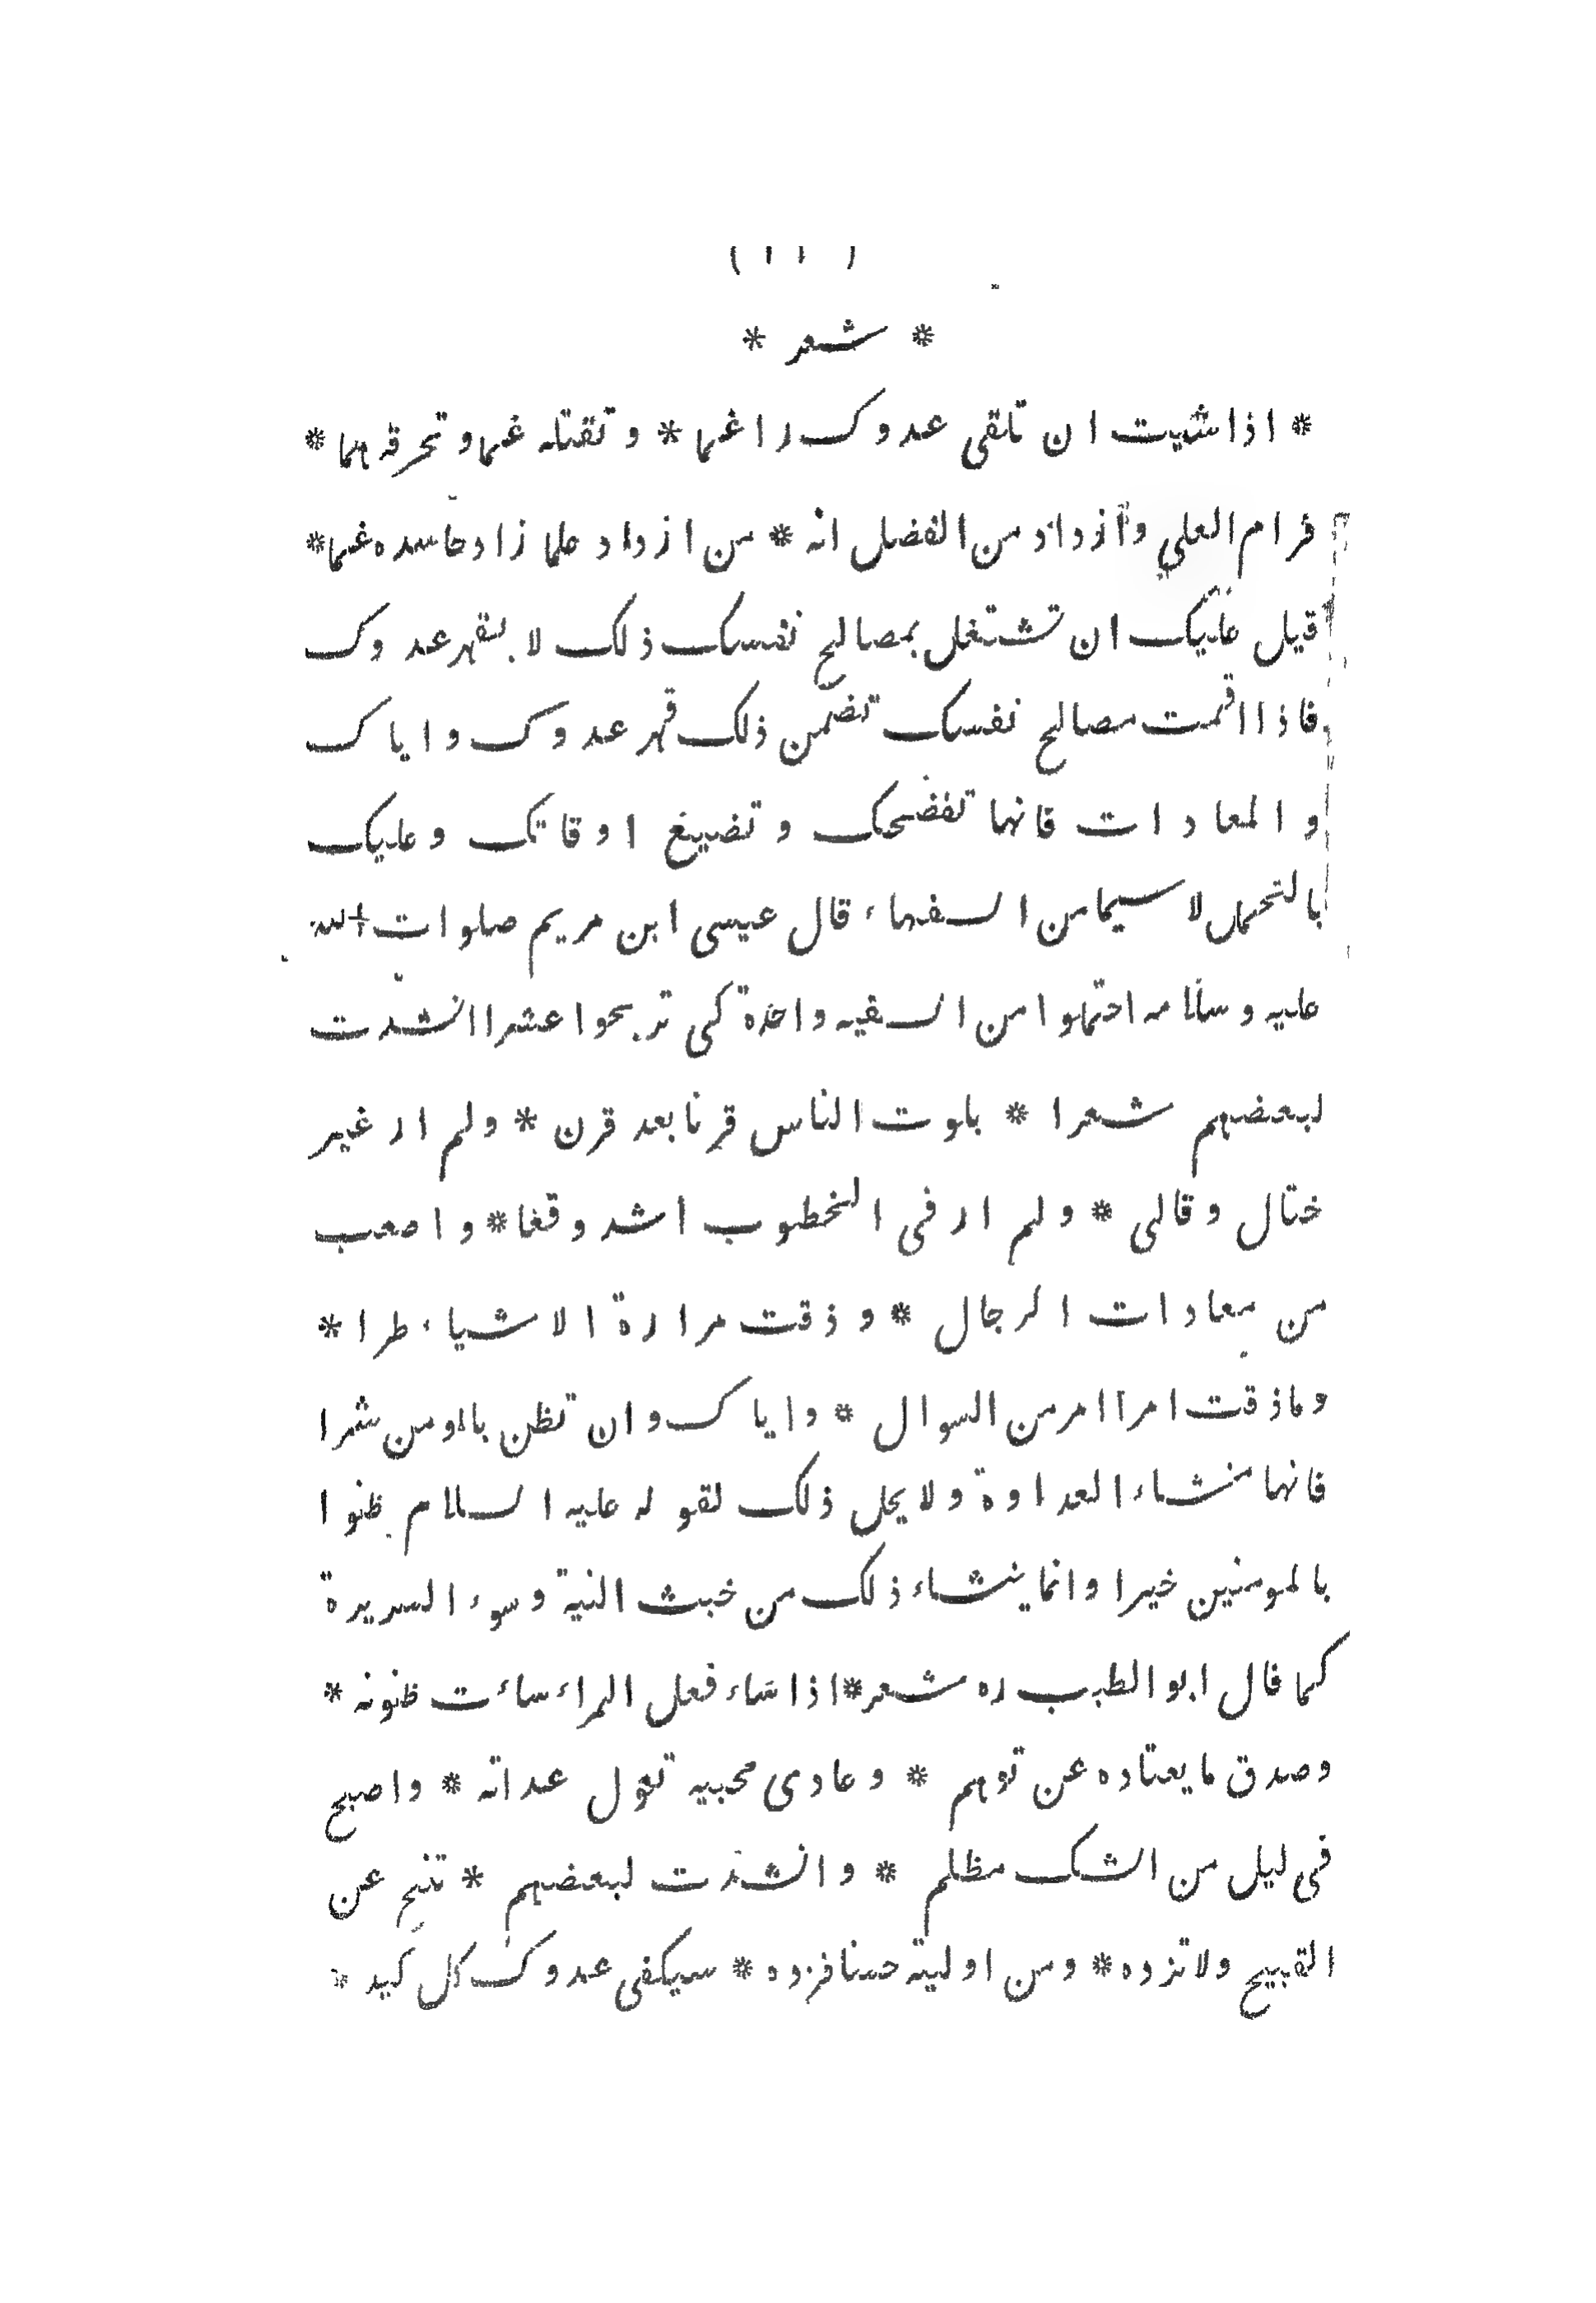 * شعر *
* اذا شيت ان تلقى عدوك راغما * وتقتله غما وتحرقه هما *
فرام العلي وازداد من الفضل انه * من ازداد علما زاد حاسده غما *
قيل عليك ان تشتغل بمصالح نفسك ذلك لا بقهر عدوك
فاذا اقمت مصالح نفسك تضمن ذلك قهر عدوك واياك
والمعادات فانها تفضحك وتضييغ اوقاتك وعليك
بالتحمل لا سيما من السفهاء قال عيسى ابن مريم صلوات الله
عليه وسلامه احتملوا من السفيه واحدة كى تربحوا عشرا انشدت
لبعضهم شعرا * بلوت الناس قرنا بعد قرن * ولم ار غير
ختال وقالى * ولم ار فى الخطوب اشد وقعا * واصعب
من معادات الرجال * وذقت مرارة الاشياء طرا *
وماذقت امرا امر من السوال * واياك وان تظن بالومن شرا
فانها منشاء العداوة ولا يحل ذلك لقوله عليه السلام ظنوا
بالمومنين خيرا وانما ينشاء ذلك من خبث النية وسوء السريرة
كما قال ابو الطيب ره شعر * اذا ساء فعل المراء ساءت ظنونه *
وصدق ما يعتاده عن توهم * وعادى محبيه تقول عداته * واصبح
فى ليل من الشك مظلم * وانشدت لبعضهم * تنح عن
القبيح ولا تزده * ومن اوليته حسنا فزده * سيكفى عدوك كل كيد *